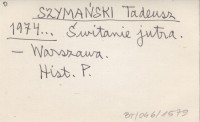 SZYMAŃSKI Tadeusz
1974... Świtanie jutra.
– Warszawa.
Hist. P.